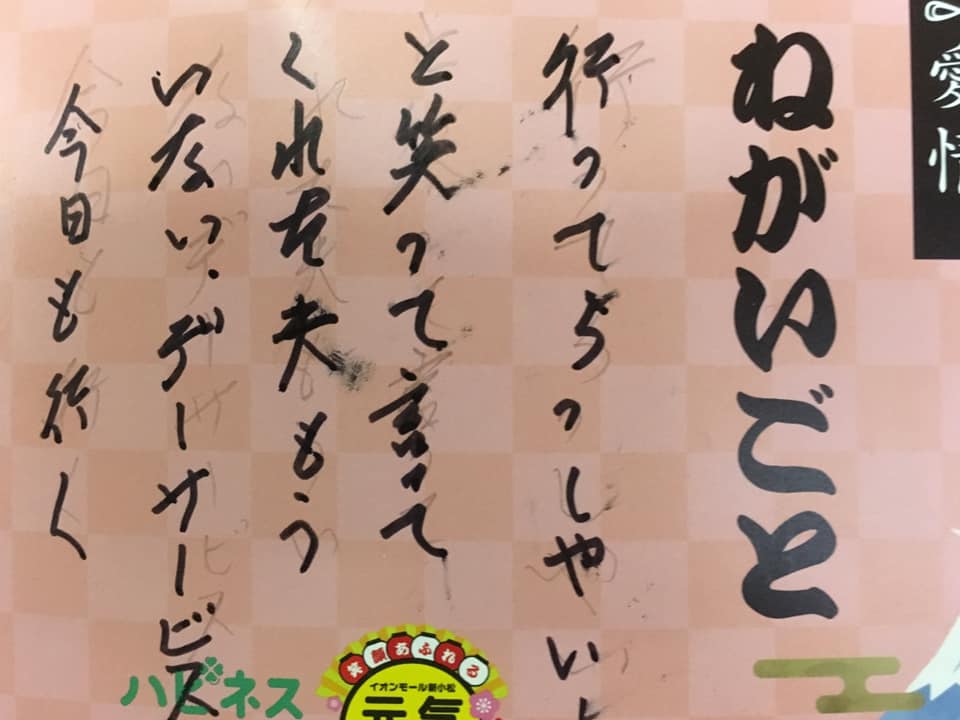 愛情
ねがいごと
行ってらっしやい
と笑って言って
くれた夫もう
いない、デーサービス
今日も行く
ハピネス
笑顔あふれる
イオンモール新小松
元気